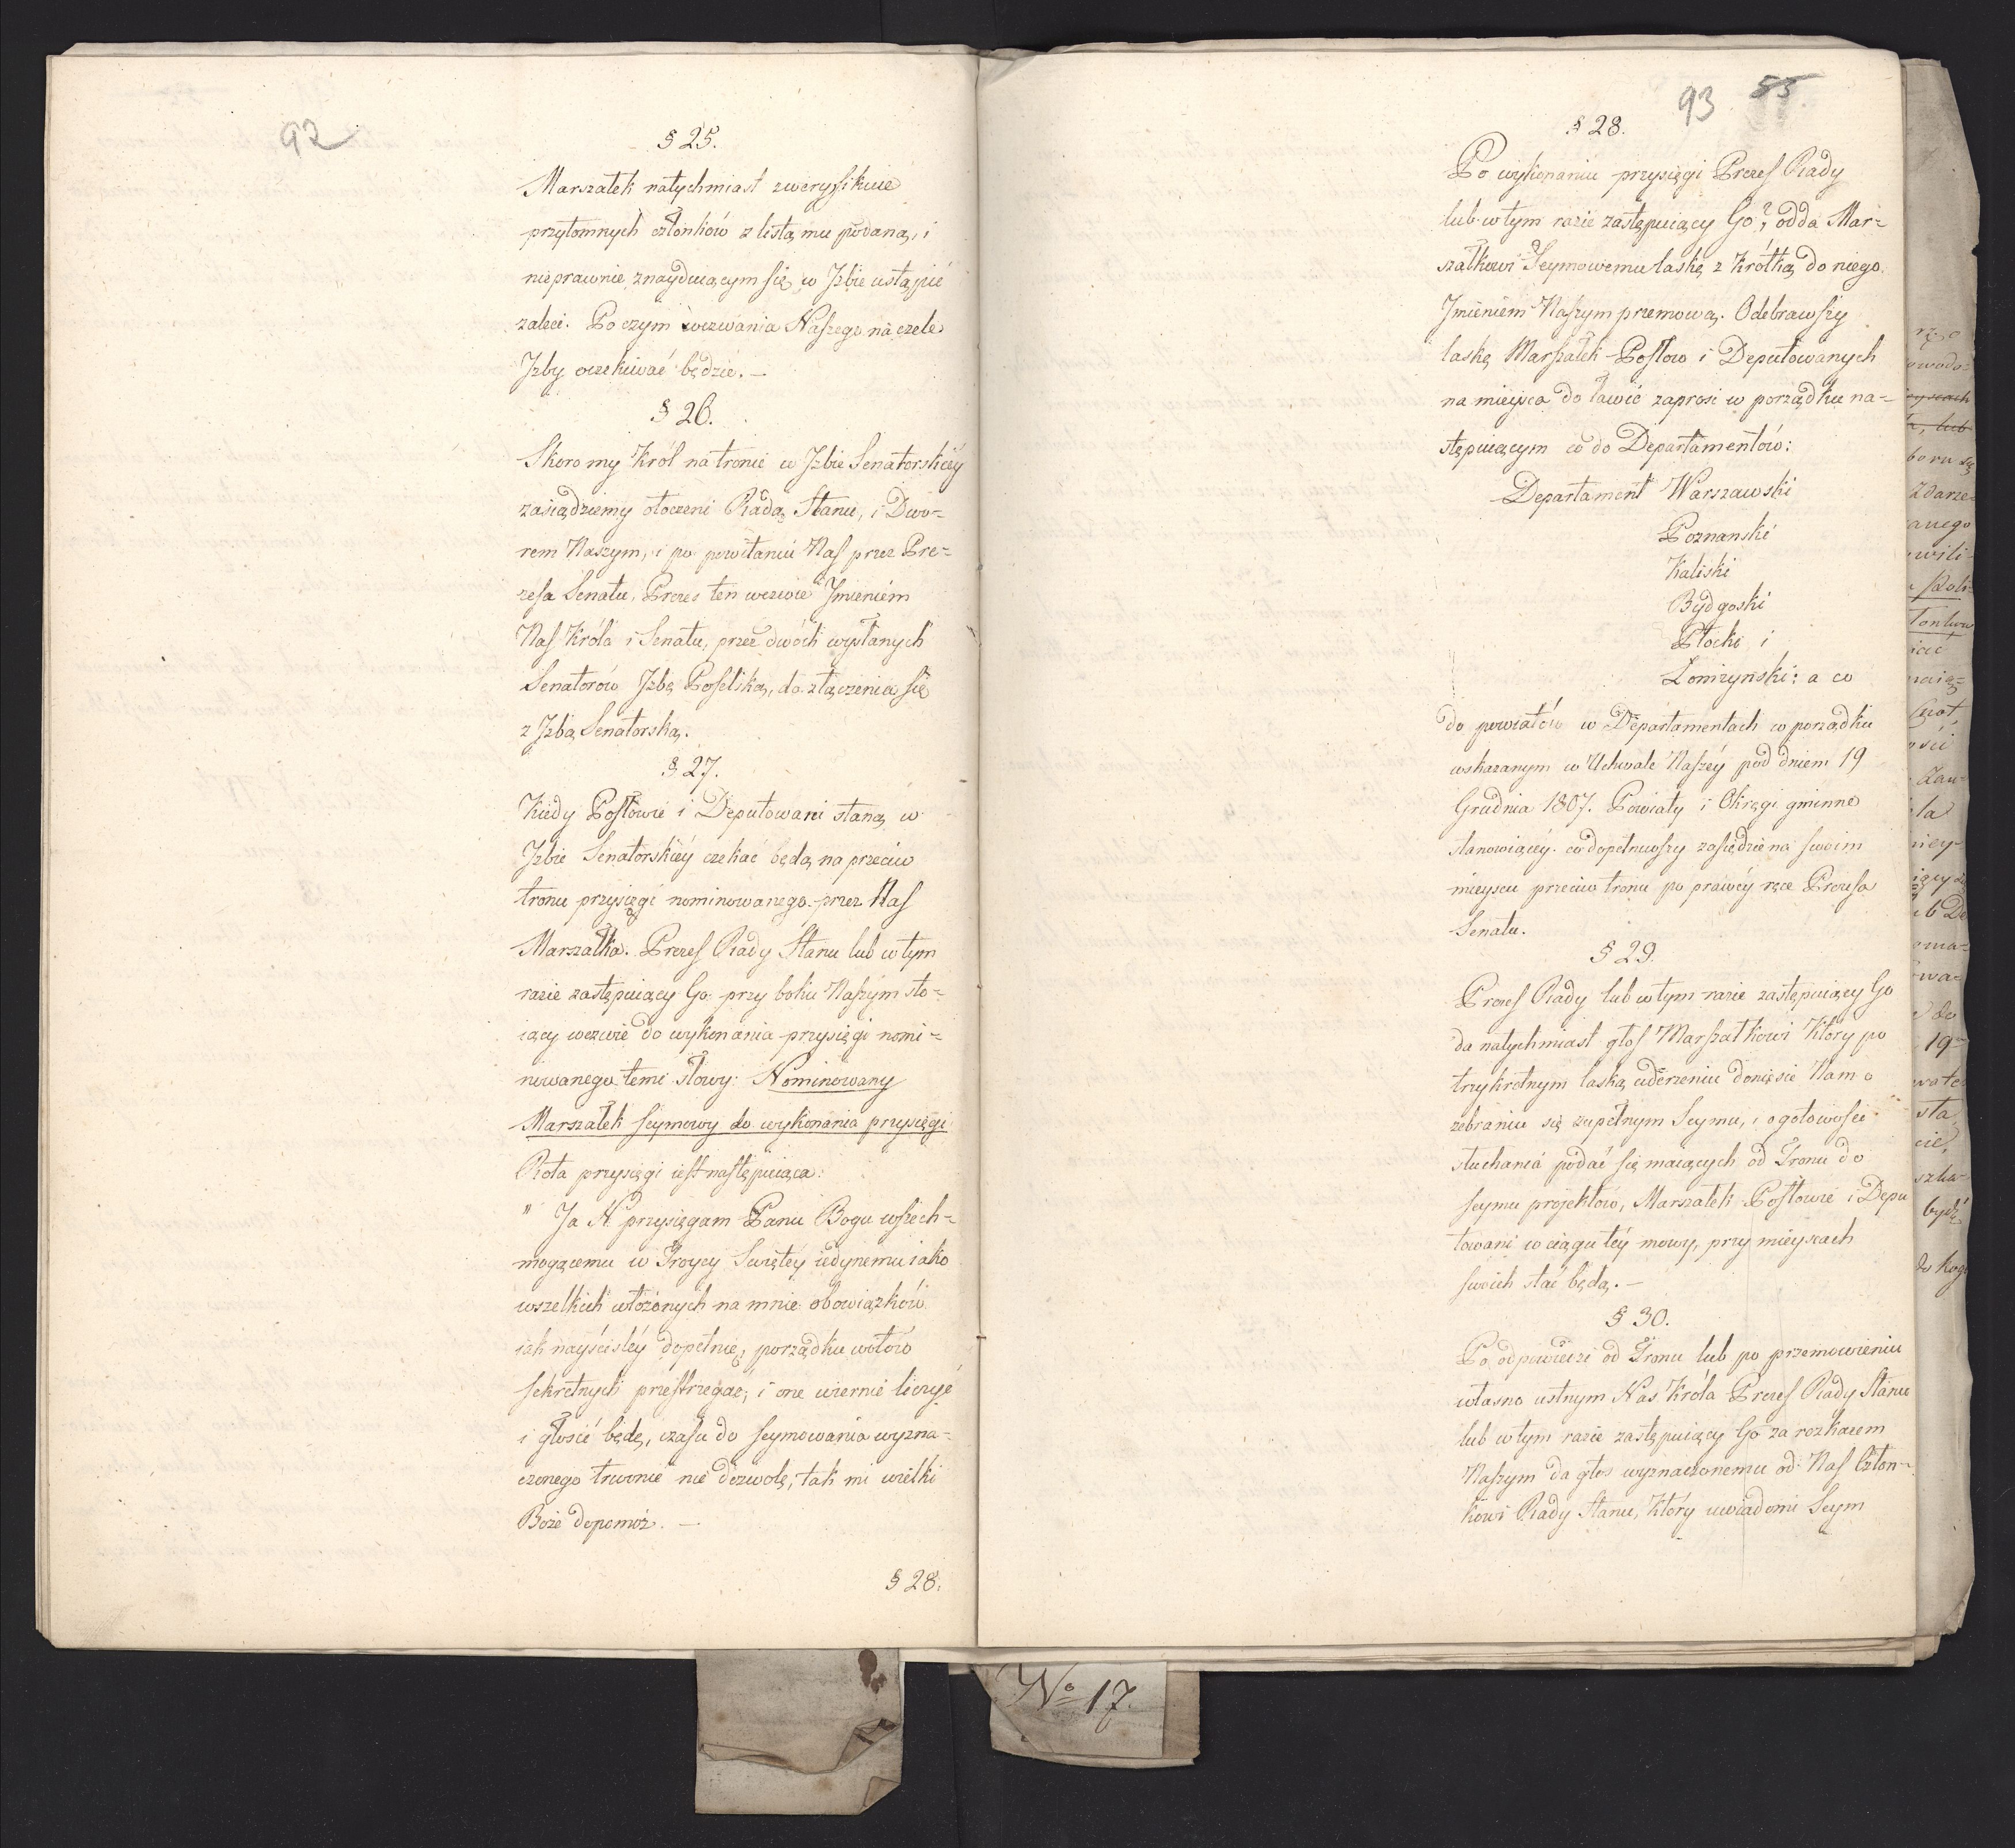 92
§ 25.
Marszałek natychmiast zweryfikuie
przytomnych członków z listą mu podaną, i
nieprawnie znayduiącym się w Jzbie ustąpić
zaleci. Po czym wezwania Naszego na czele
Jzby oczekiwać będzie. —
§ 26.
Skoro my Król na tronie w Jzbie Senatorskiey
zasiądziemy otoczeni Radą Stanu, i Dwo-
rem Naszym, i po powitaniu Nas przez Pre-
zesa Senatu, Prezes ten wezwie Jmieniem
Nas Króla i Senatu, przez dwóch wysłanych
Senatorów Jzbę Poselską, do złączenia się
z Jzbą Senatorską.
§ 27.
Kiedy Posłowie i Deputowani staną w
Jzbie Senatorskiey czekać będą na przeciw
tronu przysięgi nominowanego przez Nas
Marszałka. Prezes Rady Stanu lub w tym
razie zastępuiący Go przy boku Naszym sto-
iący wezwie do wykonania przysięgi nomi-
nowanego temi słowy: Nominowany
Marszałek seymowy do wykonania przysięgi
Rota przysięgi iest następuiąca:
" Ja N. przysięgam Panu Bogu wszech-
mogącemu w Troycy Swiętey iedynemu iako
wszelkich włożonych na mnie obowiązków
iak nayściśléy dopełnię, porządku wotów
sekretnych przestrzegać, i one wiernie liczyć
i głosić będę, czasu do seymowania wyzna-
czonego trwonić nie dozwolę; tak mi wielki
Boże dopomóż. —
§ 28.
93 55.
§ 28.
Po wykonaniu przysięgi Prezes Rady
lub w tym razie zastępuiący Go, odda Mar-
szałkowi Seymowemu laskę z krótką do niego
Jmieniem Naszym przemową. Odebrawszy
laskę Marszałek Posłow i Deputowanych
na mieysca do ławic zaprosi w porządku na-
stępuiącym co do Departamentów:
Departament Warszawski
Poznanski
Kaliski
Bydgoski
Płocki i
Łomżynski: a co
do powiatów w Departamentach w porządku
wskazanym w Uchwale Naszéy pod dniem 19
Grudnia 1807. Powiaty i Okręgi gminne
stanowiącéy. co dopełniwszy zasiędzie na swoim
mieyscu przeciw tronu po prawéy ręce Prezesa
Senatu.
§ 29.
Prezes Rady lub w tym razie zastępuiący Go
da natychmiast głos Marszałkowi który po
trzykrotnym laską uderzeniu doniesie Nam o
zebraniu się zupełnym Seymu, i o gotowosci
słuchania podać się maiących od Tronu do
seymu projektów, Marszałek Posłowie i Depu
towani w ciągu téy mowy, przy mieyscach
swoich stać będą. —
§ 30.
Po odpowiedzi od Tronu lub po przemowieniu
własno ustnym Nas Króla Prezes Rady Stanu
lub w tym razie zastępuiący Go za rozkazem
Naszym da głos wyznaczonemu od Nas Człon-
kowi Rady Stanu, który uwiadomi Seym
No 17.